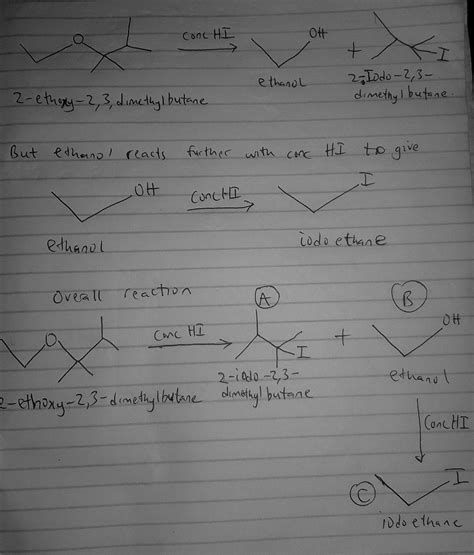 O conc HI OH
+ I
ethanol 2-Iodo-2,3-
2-ethoxy-2,3,dimethylbutane dimethylbutane.
But ethanol reacts further with conc HI to give
OH conc HI I
ethanol iodo ethane
Overall reaction A B
O conc HI I + OH
2-iodo-2,3-
2-ethoxy-2,3-dimethylbutane dimethylbutane ethanol
conc HI
C I
iodo ethane